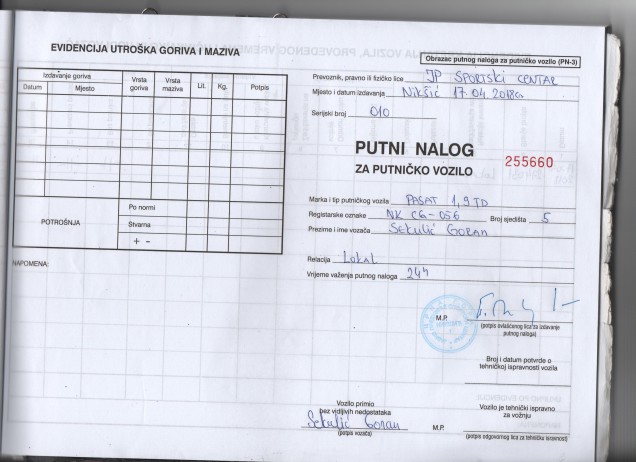 EVIDENCIJA UTROŠKA GORIVA I MAZIVA
Izdavanje goriva
Datum
Mjesto
Vrsta goriva
Vrsta maziva
Lit.
Kg.
Potpis
POTROŠNJA
Po normi
Stvarna
+ -
NAPOMENA:
Obrazac putnog naloga za putničko vozilo (PN-3)
Prevoznik, pravno ili fizičko lice JP SPORTSKI CENTAR
Mjesto i datum izdavanja Nikšić 17.04.2018G
Serijski broj 010
PUTNI NALOG
ZA PUTNIČKO VOZILO
255660
Marka i tip putničkog vozila PASAT 1,9 TD
Registarske oznake NK CG-056 Broj sjedišta 5
Prezime i ime vozača SEKULIĆ GORAN
Relacija LOKAL
Vrijeme važenja putnog naloga 24h
M.P.
(potpis ovlašćenog lica za izdavanje
putnog naloga)
Broj i datum potvrde o
tehničkoj ispravnosti vozila
Vozilo primio
bez vidljivih nedostataka
Sekulić Goran
(potpis vozača)
M.P.
Vozilo je tehnički ispravno
za vožnju
(potpis odgovornog lica za tehničku ispravnost)